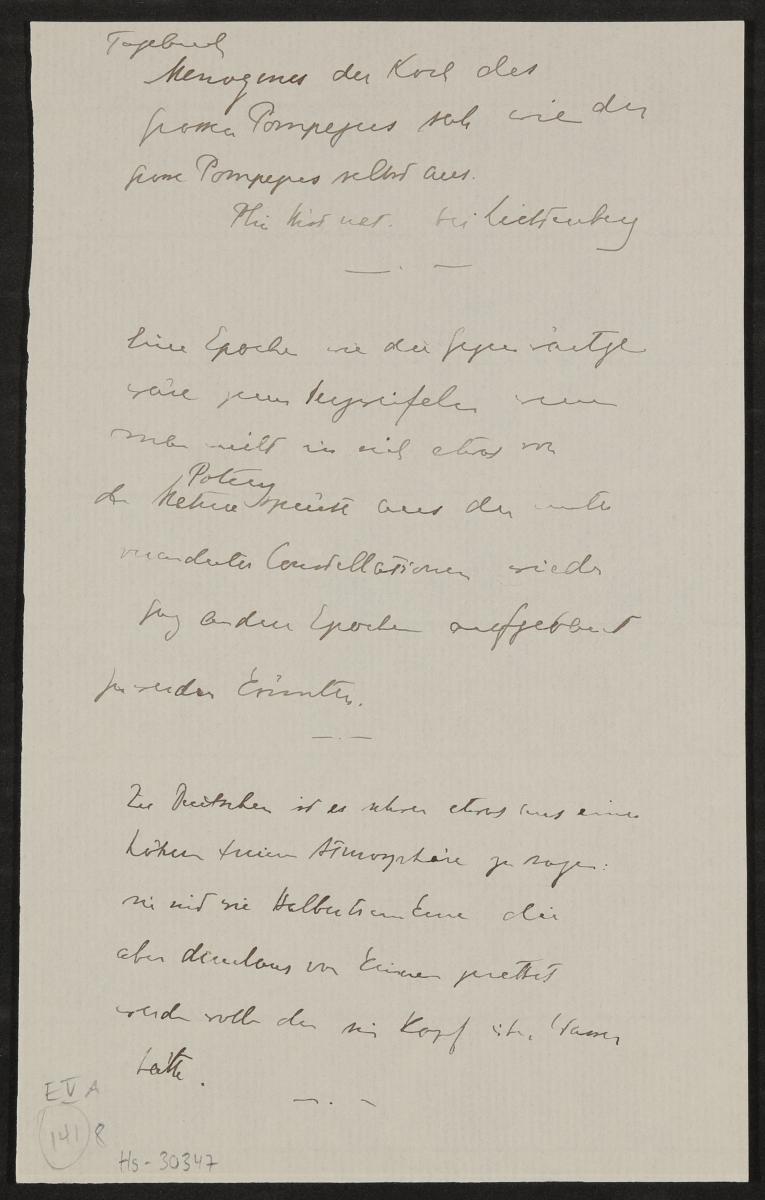 Tagebuch
Menogenes der Koch des
grossen Pompejus sah wie der
grosse Pompejus selbst aus.
Plin. hist. nat. bei Lichtenberg
Eine Epoche wie die gegenwärtige
wäre zum Verzweifeln wenn
man nicht in sich etwas von
Potenz
der spürte aus der unter
veränderten Constellationen wieder
ganz andere Epochen aufgebaut
zu werden könnten.
Zu Deutschen ist es schwer etwas aus einer
höhern freien Atmosphäre zu sagen:
sie sind wie Halbertrunkene die
aber durchaus von Keinem gerettet
werden wollen der sein Kopf über Wasser
hätte.
E V A
141 8
Hs-30347